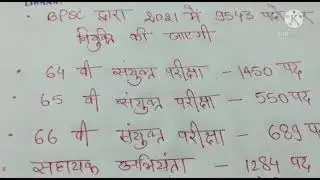 • BPSC द्वारा 2021 में 9543 पदों पर
नियुक्ति की जाएगी
• 64 वी संयुक्त परीक्षा - 1450 पद
• 65 वी संयुक्त परीक्षा - 550 पद
• 66 वी संयुक्त परीक्षा - 689 पद
• सहायक अभियंता - 1284 पद